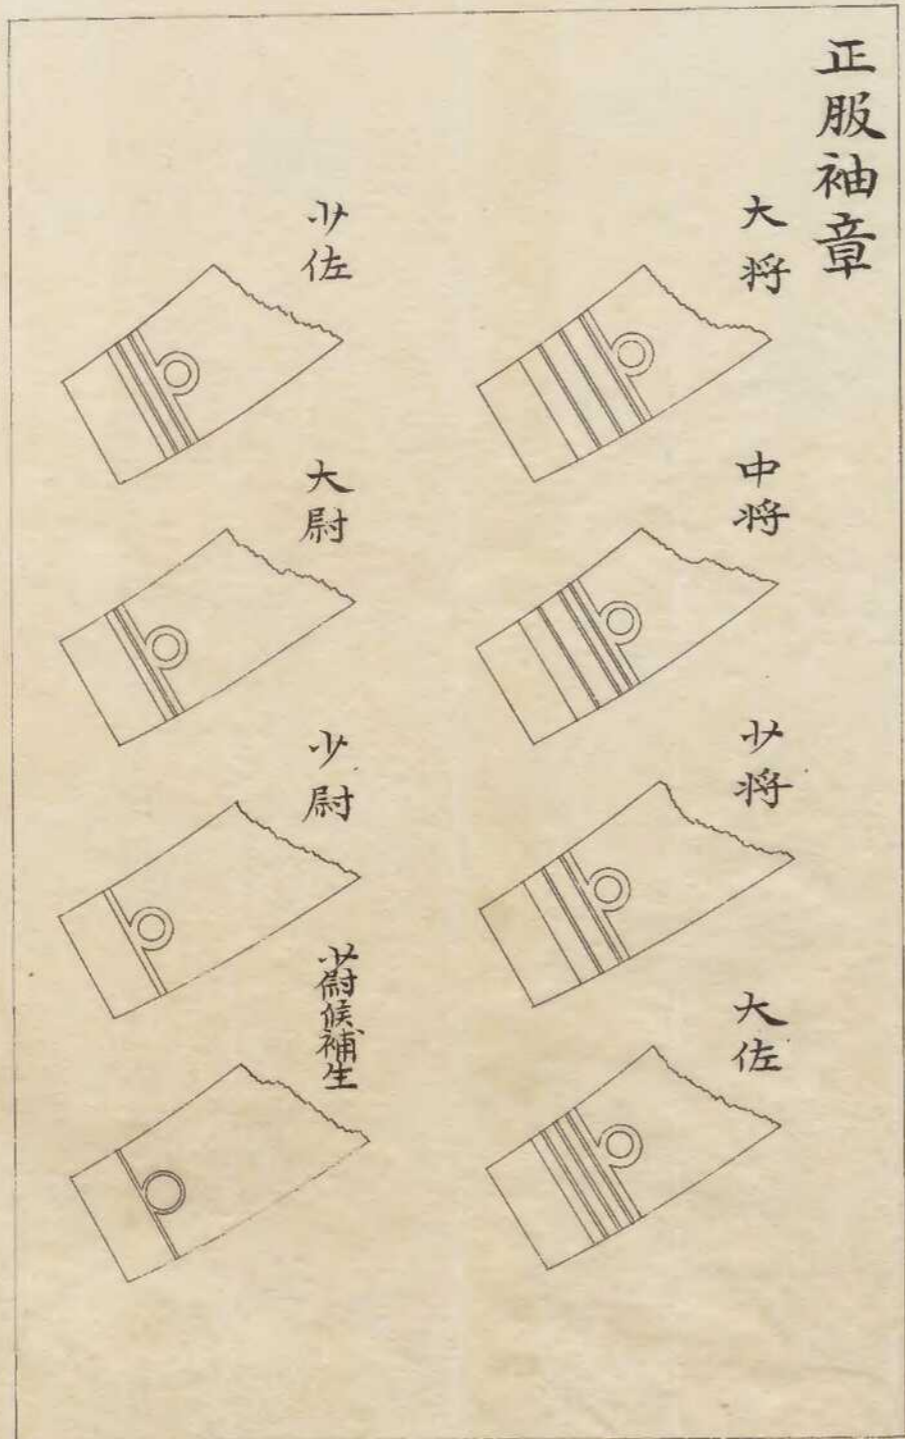 正服袖章
大将
中将
少将
大佐
少佐
大尉
少尉
少尉候補生